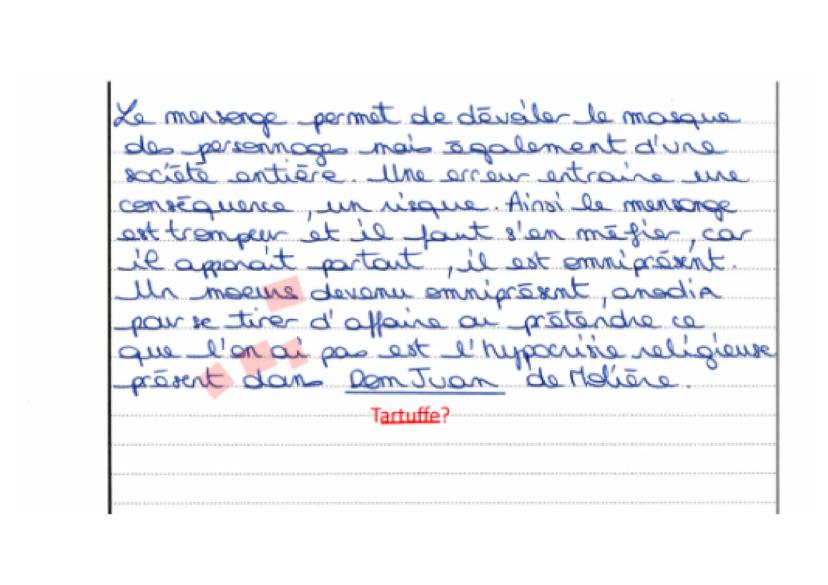 Le mensonge permet de dévoiler le masque
des personnages mais également d'une
société entière. Une erreur entraine une
conséquence, un risque. Ainsi le mensonge
est trompeur et il faut s'en méfier, car
il apparait partout, il est omniprésent.
Un moeurs devenu omniprésent, anodin
pour se tirer d'affaire ou prétendre ce
que l'on ai pas est l'hypocrisie religieuse
présent dans Dom Juan de Molière.
Tartuffe?